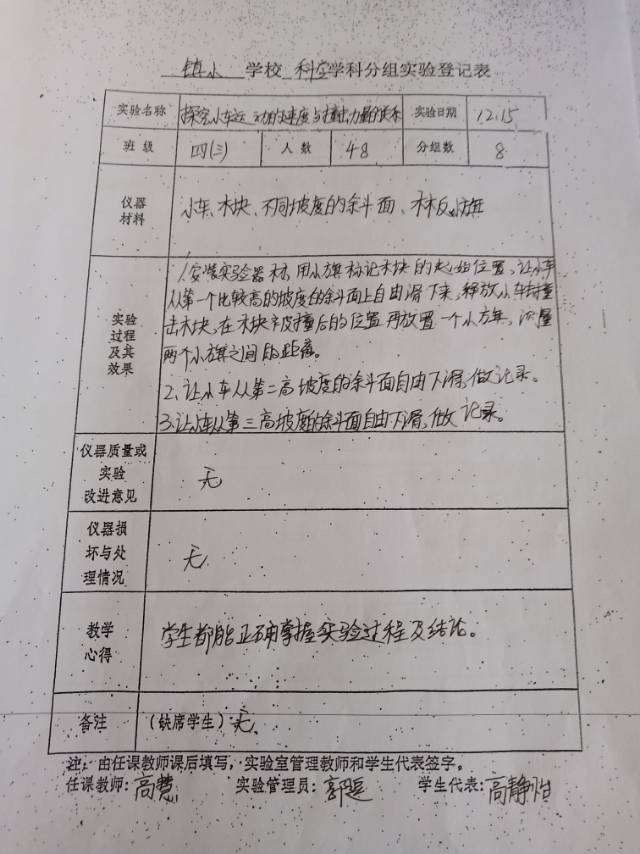 镇小 学校 科学学科分组实验登记表
实验名称 探究小车运动的速度与撞击力量的关系 实验日期 12.15
班级 四(三) 人数 48 分组数 8
仪器材料 小车、木块、不同坡度的斜面、木板、小旗
实验过程及其效果
1.安装实验器材,用小旗标记木块的起始位置,让小车
从第一个比较高的坡度的斜面上自由滑下来,释放小车封撞
击木块,在木块被撞后的位置再放置一个小旗,测量
两个小旗之间的距离。
2、让小车从第二高坡度的斜面自由下滑,做记录。
3.让小车从第三高坡度的斜面自由下滑,做记录。
仪器质量或实验改进意见 无
仪器损坏与处理情况 无
教学心得 学生都能正确掌握实验过程及结论。
备注 (缺席学生) 无
注:由任课教师课后填写,实验室管理教师和学生代表签字。
任课教师:高慧 实验管理员: 学生代表:高静怡